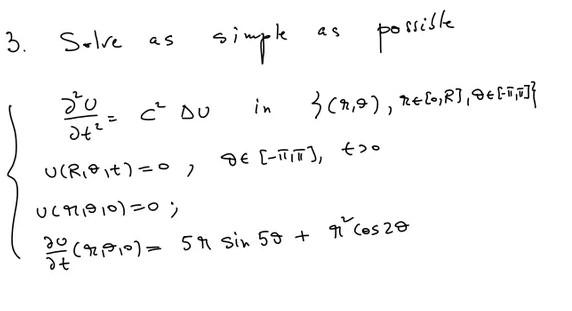 3. Solve as simple as possible
∂²U/∂t² = C² ΔU in {(r,θ), r∈[0,R], θ∈[-π,π]}
U(R,θ,t)=0, θ∈[-π,π], t>0
U(r,θ,0)=0;
∂U/∂t (r,θ,0) = 5r sin 5θ + r² cos 2θ